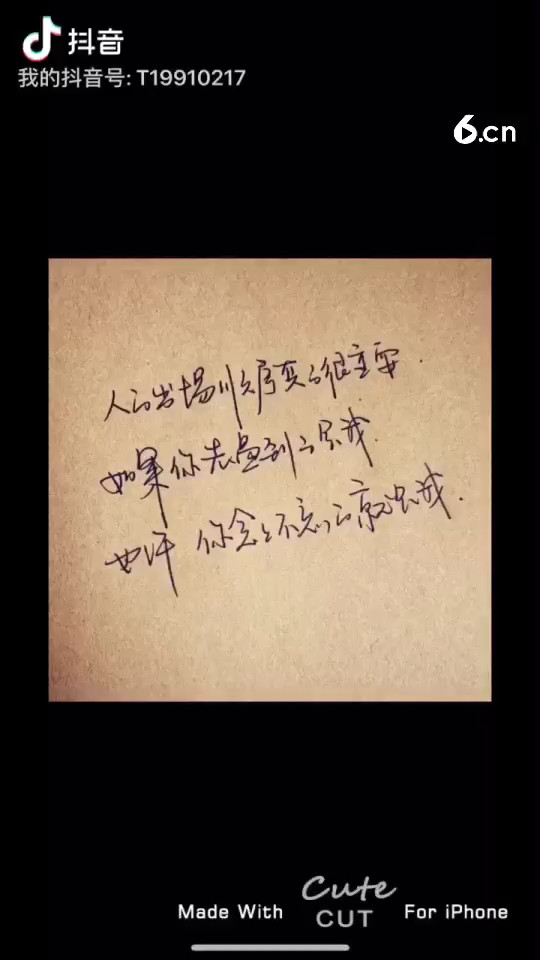 抖音
我的抖音号: T19910217
6.cn
人的出场顺序真的很重要.
如果你先遇到的是我
也许 你念念不忘的就是我.
Made With Cute CUT For iPhone